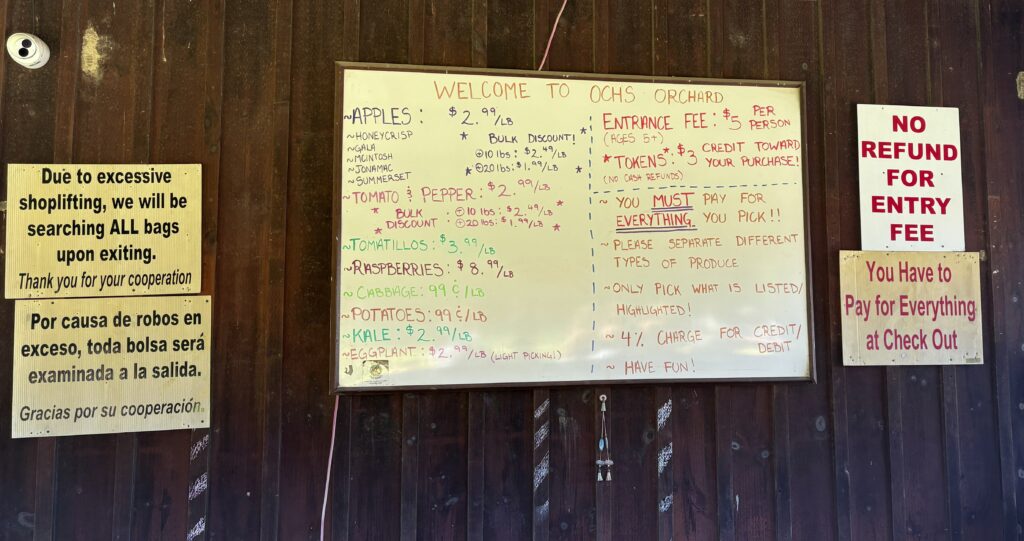 Due to excessive
shoplifting, we will be
searching ALL bags
upon exiting.
Thank you for your cooperation
Por causa de robos en
exceso, toda bolsa será
examinada a la salida.
Gracias por su cooperación.
WELCOME TO OCHS ORCHARD
~APPLES: $2.99/LB
~HONEYCRISP
~GALA
~MCINTOSH
~JONAMAC
~SUMMERSET
* BULK DISCOUNT! *
10 lbs: $2.49/LB
* 20 lbs: $1.99/LB *
~TOMATO & PEPPER: $2.99/LB
* BULK DISCOUNT: 10 lbs: $2.49/LB *
* 20 lbs: $1.99/LB *
~TOMATILLOS: $3.99/LB
~RASPBERRIES: $8.99/LB
~CABBAGE: 99¢/LB
~POTATOES: 99¢/LB
~KALE: $2.99/LB
~EGGPLANT: $2.99/LB (LIGHT PICKING!)
ENTRANCE FEE: $5 PER PERSON
(AGES 5+)
*TOKENS*: $3 CREDIT TOWARD YOUR PURCHASE!
(NO CASH REFUNDS)
~ YOU MUST PAY FOR
EVERYTHING YOU PICK!!
~ PLEASE SEPARATE DIFFERENT
TYPES OF PRODUCE
~ONLY PICK WHAT IS LISTED/
HIGHLIGHTED!
~ 4% CHARGE FOR CREDIT/
DEBIT
~ HAVE FUN!
NO
REFUND
FOR
ENTRY
FEE
You Have to
Pay for Everything
at Check Out